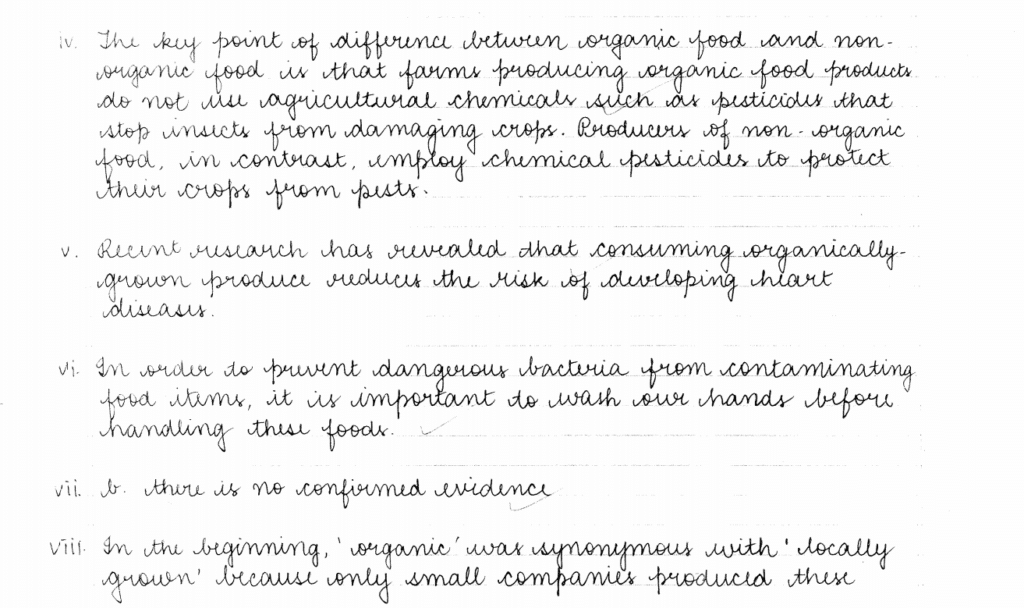 iv. The key point of difference between organic food and non-
organic food is that farms producing organic food products
do not use agricultural chemicals such as pesticides that
stop insects from damaging crops. Producers of non-organic
food, in contrast, employ chemical pesticides to protect
their crops from pests.
v. Recent research has revealed that consuming organically-
grown produce reduces the risk of developing heart
diseases.
vi. In order to prevent dangerous bacteria from contaminating
food items, it is important to wash our hands before
handling these foods.
vii. b. there is no confirmed evidence
viii. In the beginning, 'organic' was synonymous with 'locally
grown' because only small companies produced these